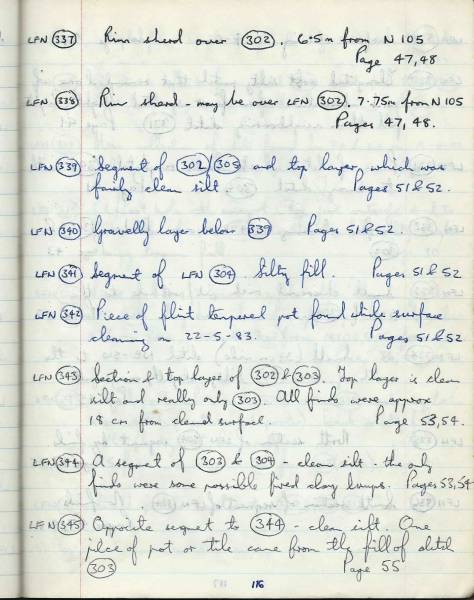 LFN 337 Rim sherd over 302. 6.5m from N 105
Page 47,48
LFN 338 Rim sherd - may be over LFN 302. 7.75m from N 105
Pages 47, 48.
LFN 339 Segment of 302/305 and top layer, which was
fairly clean silt Pages 51 & 52.
LFN 340 Gravelly layer below 339 Pages 51 & 52.
LFN 341 Segment of LFN 304. Silty fill. Pages 51 & 52
LFN 342 Piece of flint tempered pot found while surface
cleaning on 22-5-83. Pages 51 & 52
LFN 343 Section & top layer of 302 & 303. Top layer is clean
silt and really only 303. All finds were approx
18 cm from cleaned surface. Page 53,54.
LFN 344 A segment of 303 & 304 - clean silt - the only
finds were some possible fired clay lumps. Pages 53,54
LFN 345 Opposite segment to 344 - clean silt. One
piece of pot or tile came from the fill of ditch
303 Page 55
116